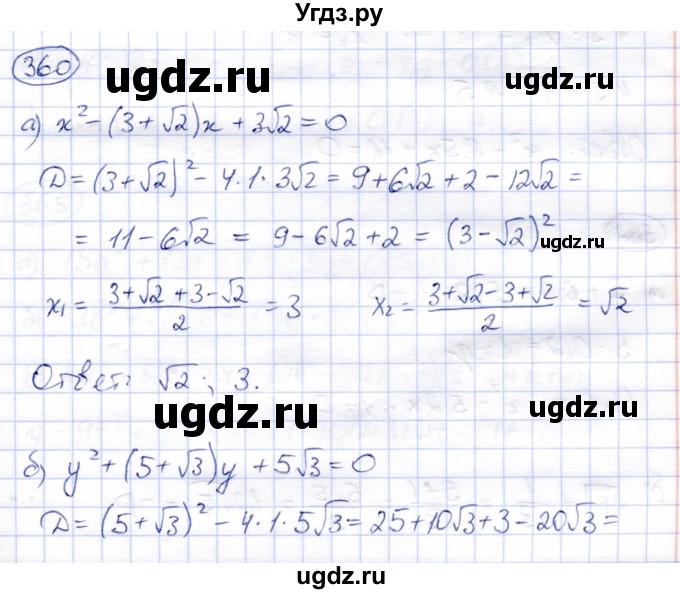 Угдз.ру
360
ugdz.ru ugdz.ru
а) x² − (3 + √2)x + 3√2 = 0
D = (3 + √2)² − 4·1·3√2 = 9 + 6√2 + 2 − 12√2 =
= 11 − 6√2 = 9 − 6√2 + 2 = (3 − √2)²
ugdz.ru
x₁ = (3 + √2 + 3 − √2)/2 = 3 x₂ = (3 + √2 − 3 + √2)/2 = √2
Ответ: √2; 3.
ugdz.ru ugdz.ru
б) y² + (5 + √3)y + 5√3 = 0
D = (5 + √3)² − 4·1·5√3 = 25 + 10√3 + 3 − 20√3 =
ugdz.ru